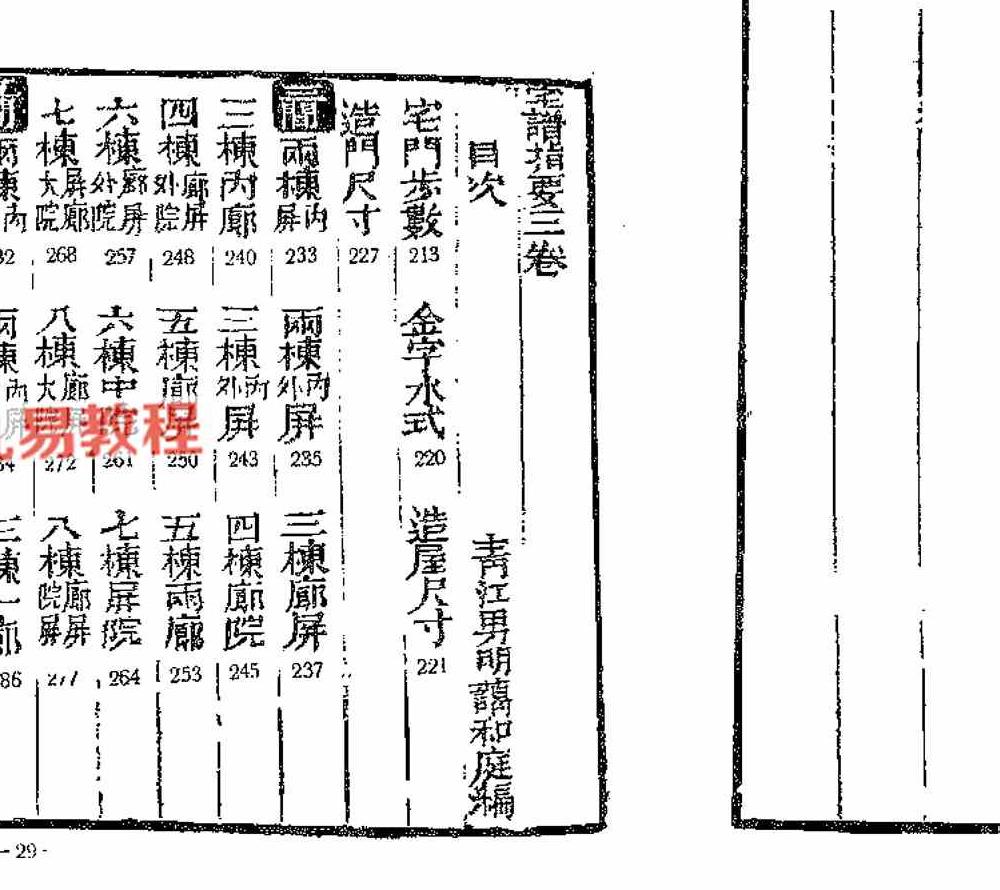 宅譜指要三卷
目次
青江男明謌和庭編
宅門步數 213
金字水式 220
造屋尺寸 221
造門尺寸 227
二間 兩棟內屏 233
兩棟內外屏 235
三棟廊屏 237
三棟內廊 240
三棟內外屏 243
四棟廊院 245
四棟廊屏外院 248
五棟廊屏 250
五棟兩廊 253
六棟廊屏外院 257
六棟中院 261
七棟屏院 264
七棟屏廊大院 268
八棟廊屏大院 272
八棟廊屏院屏 277
易教程
- 29 -